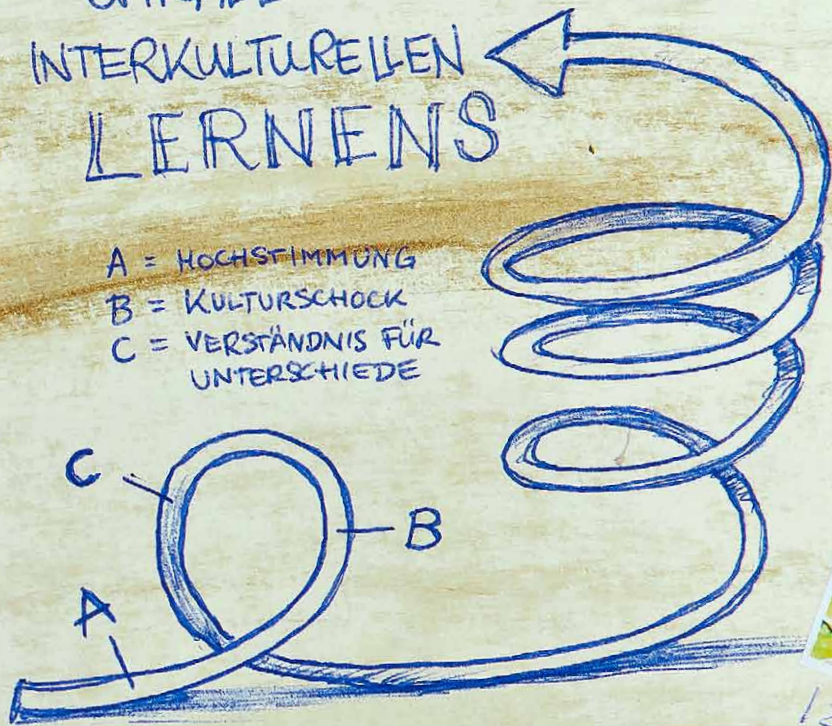 INTERKULTURELLEN
LERNENS
A = HOCHSTIMMUNG
B = KULTURSCHOCK
C = VERSTÄNDNIS FÜR
UNTERSCHIEDE
C
B
A